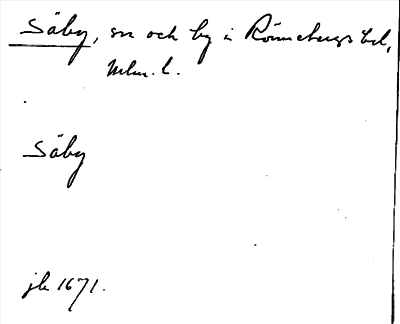 Säby, sn och by i Rönnebergs hd,
Mlm. l.
Säby
jb 1671.